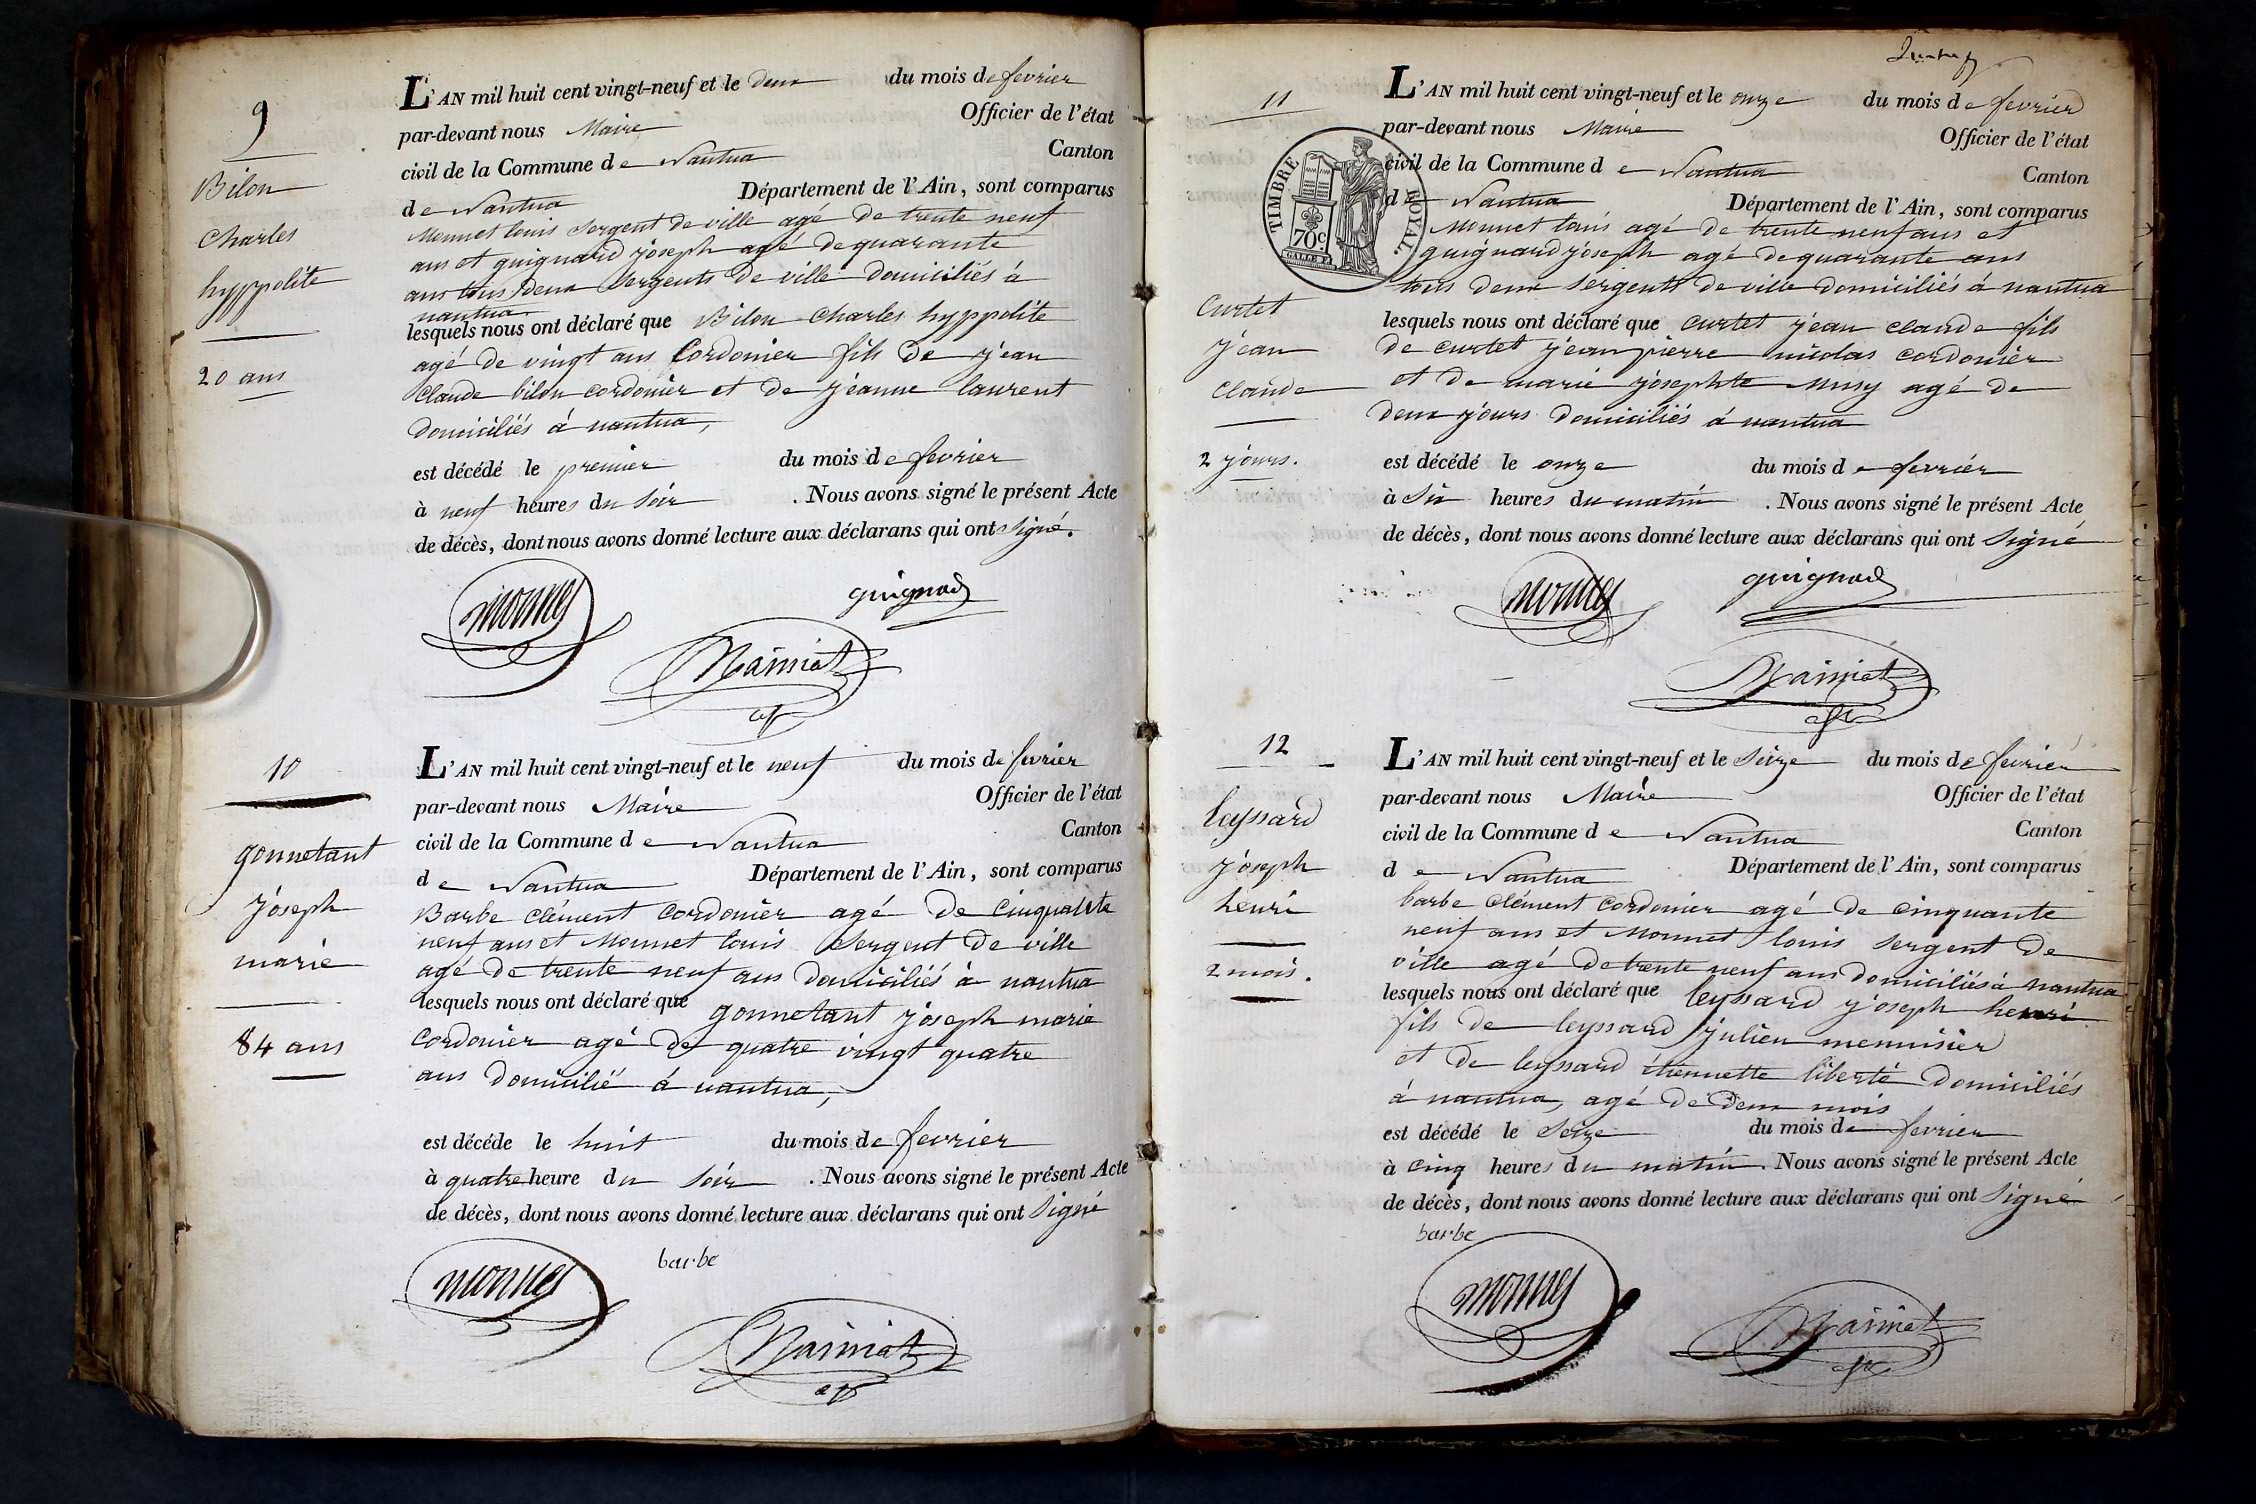 9
Bilon
Charles
hyppolite
20 ans
L'AN mil huit cent vingt-neuf et le deux du mois de fevrier
par-devant nous Maire Officier de l'état
civil de la Commune de Nantua Canton
de Nantua Département de l'Ain, sont comparus
Monnet louis sergent de ville agé de trente neuf
ans et guignard joseph agé de quarante
ans tous deux sergents de ville domiciliés à
nantua
lesquels nous ont déclaré que Bilon Charles hyppolite
agé de vingt ans Cordonier fils de jean
Claude bilon cordonier et de jeanne laurent
domiciliés à nantua,
est décédé le premier du mois de fevrier
à neuf heures du soir . Nous avons signé le présent Acte
de décès, dont nous avons donné lecture aux déclarans qui ont signé.
monnet
guignard
10
gonnetant
joseph
marie
84 ans
L'AN mil huit cent vingt-neuf et le neuf du mois de fevrier
par-devant nous Maire Officier de l'état
civil de la Commune de Nantua Canton
de Nantua Département de l'Ain, sont comparus
Barbe clément cordonier agé de cinquante
neuf ans et Monnet louis sergent de ville
agé de trente neuf ans domiciliés à nantua
lesquels nous ont déclaré que gonnetant joseph marie
cordonier agé de quatre vingt quatre
ans domicilié à nantua,
est décéde le huit du mois de fevrier
à quatre heure du soir . Nous avons signé le présent Acte
de décès, dont nous avons donné lecture aux déclarans qui ont signé
monnet
barbe
11
TIMBRE ROYAL.
70c.
Curtet
jean
claude
2 jours.
L'AN mil huit cent vingt-neuf et le onze du mois de fevrier
par-devant nous Maire Officier de l'état
civil de la Commune de Nantua Canton
de Nantua Département de l'Ain, sont comparus
Monnet louis agé de trente neuf ans et
guignard joseph agé de quarante ans
tous deux sergents de ville domiciliés à nantua
lesquels nous ont déclaré que curtet jean claude fils
de curtet jean pierre nicolas cordonier
et de marie josephte musy agé de
deux jours domiciliés à nantua
est décédé le onze du mois de fevrier
à six heures du matin . Nous avons signé le présent Acte
de décès, dont nous avons donné lecture aux déclarans qui ont signé
monnet
guignard
12
leyssard
joseph
henri
2 mois.
L'AN mil huit cent vingt-neuf et le seize du mois de fevrier
par-devant nous Maire Officier de l'état
civil de la Commune de Nantua Canton
de Nantua Département de l'Ain, sont comparus
barbe clément cordonier agé de cinquante
neuf ans et Monnet louis sergent de
ville agé de trente neuf ans domiciliés à nantua
lesquels nous ont déclaré que leyssard joseph henri
fils de leyssard julien menuisier
et de leyssard étiennette liberté domiciliés
à nantua, agé de deux mois
est décédé le seize du mois de fevrier
à cinq heures du matin. Nous avons signé le présent Acte
de décès, dont nous avons donné lecture aux déclarans qui ont signé
barbe
monnet